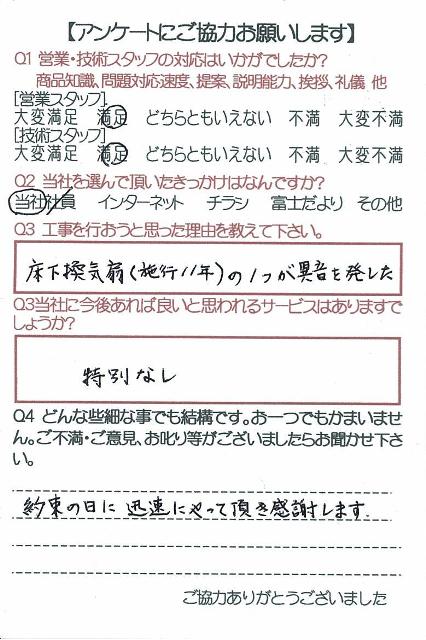 【アンケートにご協力お願いします】
Q1 営業・技術スタッフの対応はいかがでしたか?
商品知識、問題対応速度、提案、説明能力、挨拶、礼儀 他
[営業スタッフ]
大変満足 満足 どちらともいえない 不満 大変不満
[技術スタッフ]
大変満足 満足 どちらともいえない 不満 大変不満
Q2 当社を選んで頂いたきっかけはなんですか?
当社社員 インターネット チラシ 富士だより その他
Q3 工事を行おうと思った理由を教えて下さい。
床下換気扇(施行11年)の1つが異音を発した
Q3当社に今後あれば良いと思われるサービスはありますで
しょうか?
特別なし
Q4 どんな些細な事でも結構です。お一つでもかまいませ
ん。ご不満・ご意見、お叱り等がございましたらお聞かせ下さ
い。
約束の日に 迅速にやって頂き感謝します.
ご協力ありがとうございました